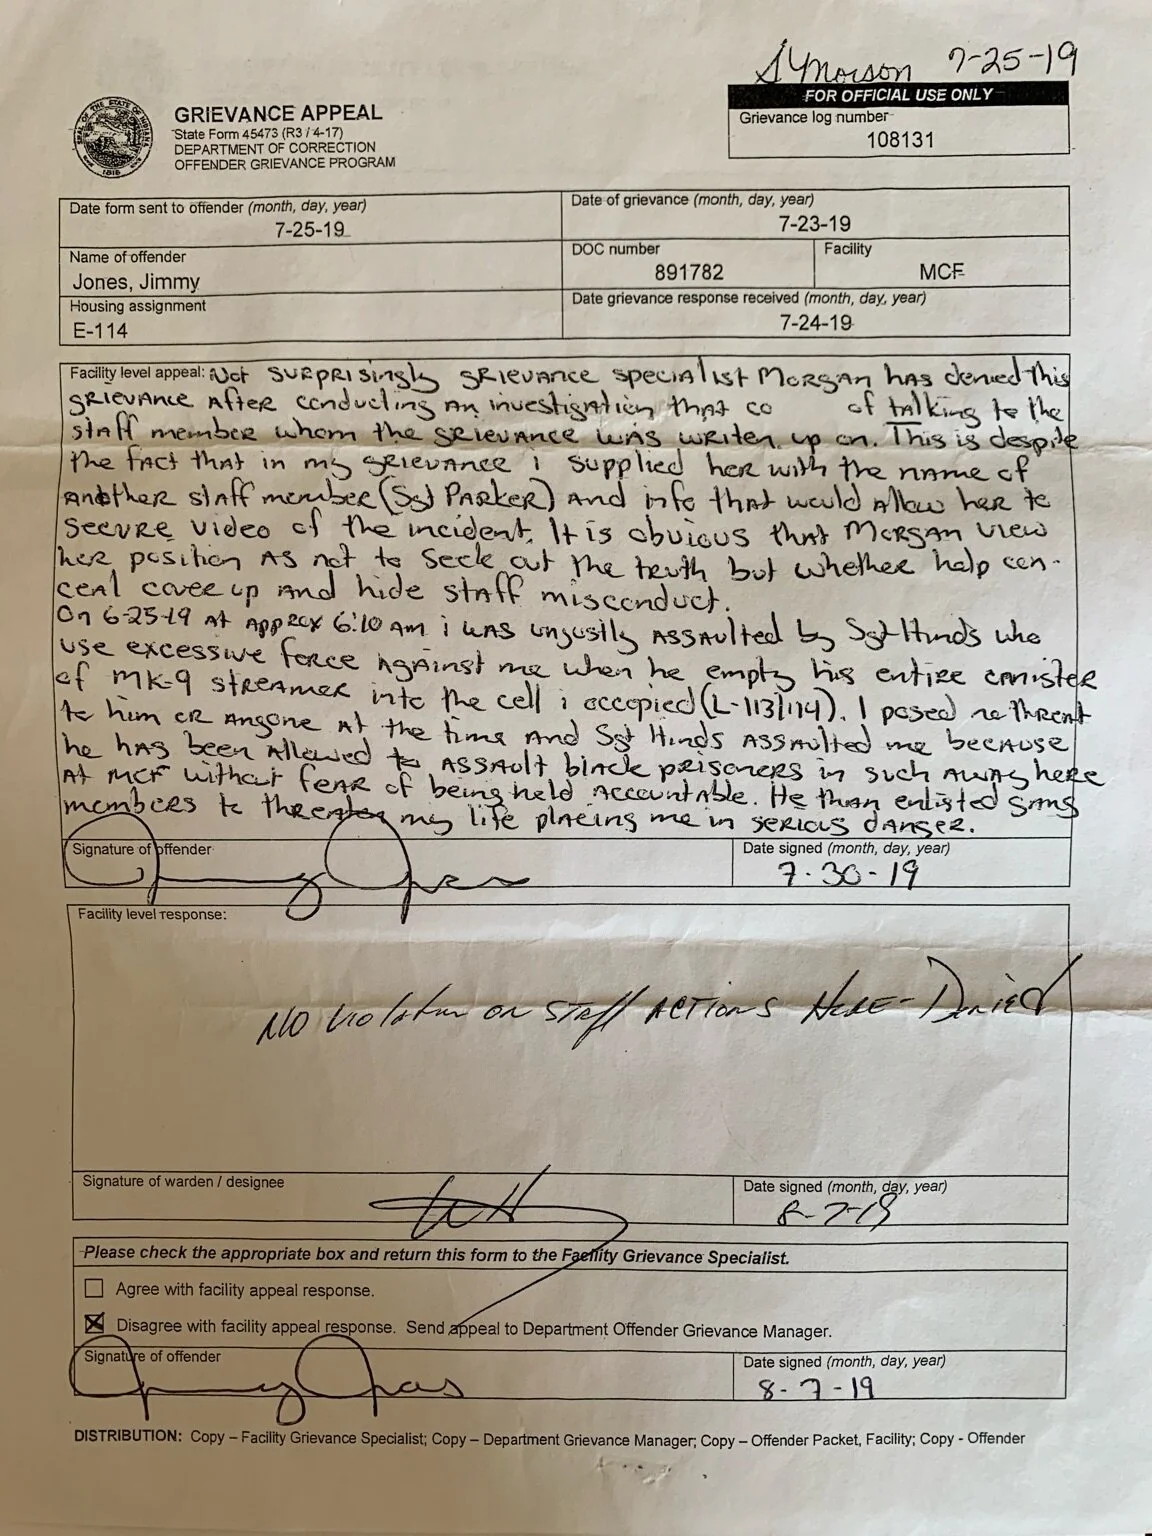 S Morson 7-25-19
FOR OFFICIAL USE ONLY
Grievance log number
108131
GRIEVANCE APPEAL
State Form 45473 (R3 / 4-17)
DEPARTMENT OF CORRECTION
OFFENDER GRIEVANCE PROGRAM
Date form sent to offender (month, day, year)
7-25-19
Date of grievance (month, day, year)
7-23-19
Name of offender
Jones, Jimmy
DOC number
891782
Facility
MCF
Housing assignment
E-114
Date grievance response received (month, day, year)
7-24-19
Facility level appeal: Not surprisingly grievance specialist Morgan has denied this
grievance after conducting an investigation that co of talking to the
staff member whom the grievance was writen up on. This is despite
the fact that in my grievance i supplied her with the name of
another staff member (Sgt Parker) and info that would allow her to
secure video of the incident. It is obvious that Morgan view
her position as not to seek out the truth but whether help con-
ceal cover up and hide staff misconduct.
On 6-25-19 at approx 6:10 am i was unjustly assaulted by Sgt Hinds who
use excessive force against me when he empty his entire canister
of MK-9 streamer into the cell i occopied (L-113/114). I posed no threat
to him or anyone at the time and Sgt Hinds assaulted me because
he has been allowed to assault black prisoners in such away here
at MCF without fear of being held accountable. He than enlisted gang
members to threaten my life placing me in serious danger.
Signature of offender
Jimmy Jones
Date signed (month, day, year)
7-30-19
Facility level response:
No violation on staff actions here - Denied
Signature of warden / designee
Date signed (month, day, year)
8-7-19
Please check the appropriate box and return this form to the Facility Grievance Specialist.
Agree with facility appeal response.
Disagree with facility appeal response. Send appeal to Department Offender Grievance Manager.
Signature of offender
Jimmy Jones
Date signed (month, day, year)
8-7-19
DISTRIBUTION: Copy – Facility Grievance Specialist; Copy – Department Grievance Manager; Copy – Offender Packet, Facility; Copy - Offender